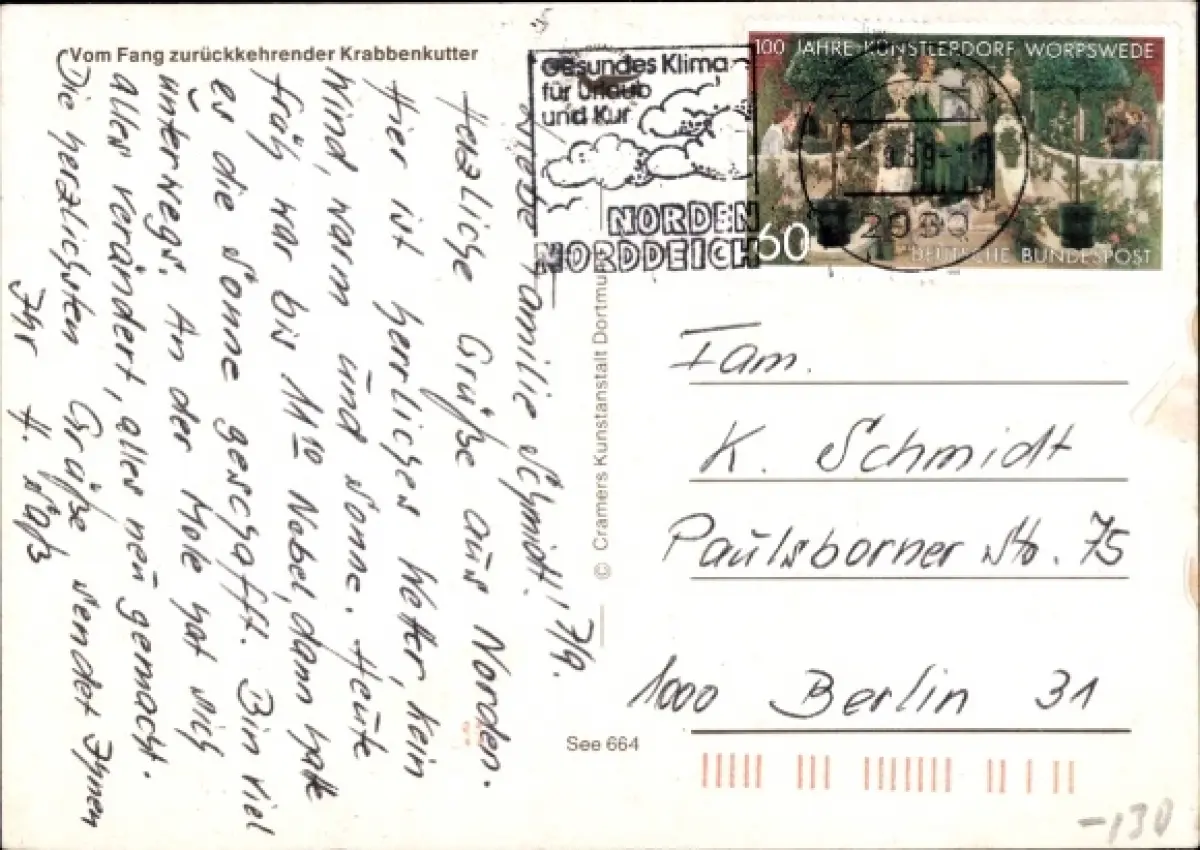 Vom Fang zurückkehrender Krabbenkutter
Liebe Familie Schmidt! 7/9.
Herzliche Grüße aus Norden.
Hier ist herrliches Wetter, kein
Wind, warm und Sonne. Heute
früh war bis 11¹⁰ Nebel, dann hatte
es die Sonne geschafft. Bin viel
unterwegs. An der Mole hat sich
alles verändert, alles neu gemacht.
Die herzlichsten Grüße sendet Ihnen
Ihr H. Saß
© Cramers Kunstanstalt Dortmund
See 664
Gesundes Klima
für Urlaub
und Kur
NORDEN
NORDDEICH
100 JAHRE KÜNSTLERDORF WORPSWEDE
60
DEUTSCHE BUNDESPOST
Fam.
K. Schmidt
Paulsborner Str. 75
1000 Berlin 31
-130